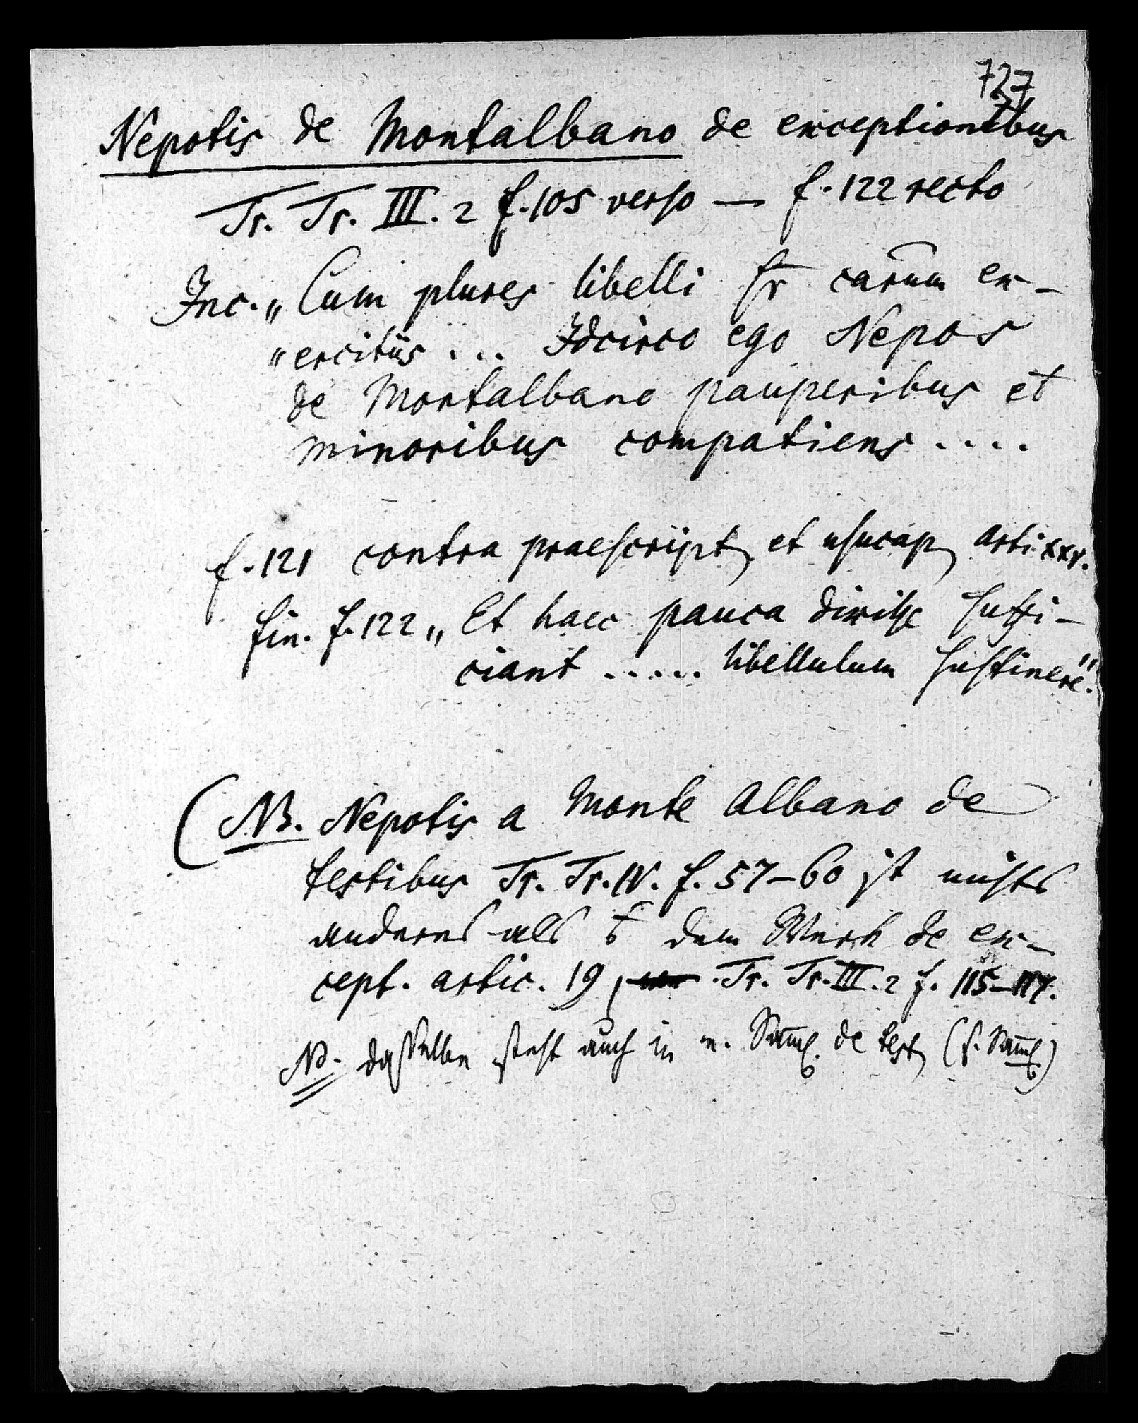 727
Nepotis de Montalbano de exceptionibus
Tr. Tr. III. 2 f. 105 verso — f. 122 recto
Inc. „Cum plures libelli sr earum ex-
„ercitiis ... Idcirco ego Nepos
de Montalbano pauperibus et
minoribus compatiens ....
f. 121 contra praescript. et usucap. arti. xxv.
fin. f. 122 „Et haec pauca dixisse suffi-
ciant ..... libellulum sustinere".
(NB. Nepotis a Monte Albano de
testibus Tr. Tr. IV. f. 57–60 ist nichts
anderes als dem Werk de ex-
cept. artic. 19, Tr. Tr. III. 2 f. 115–117.
NB. dasselbe steht auch in m. Saml. de test. (s. Saml.)